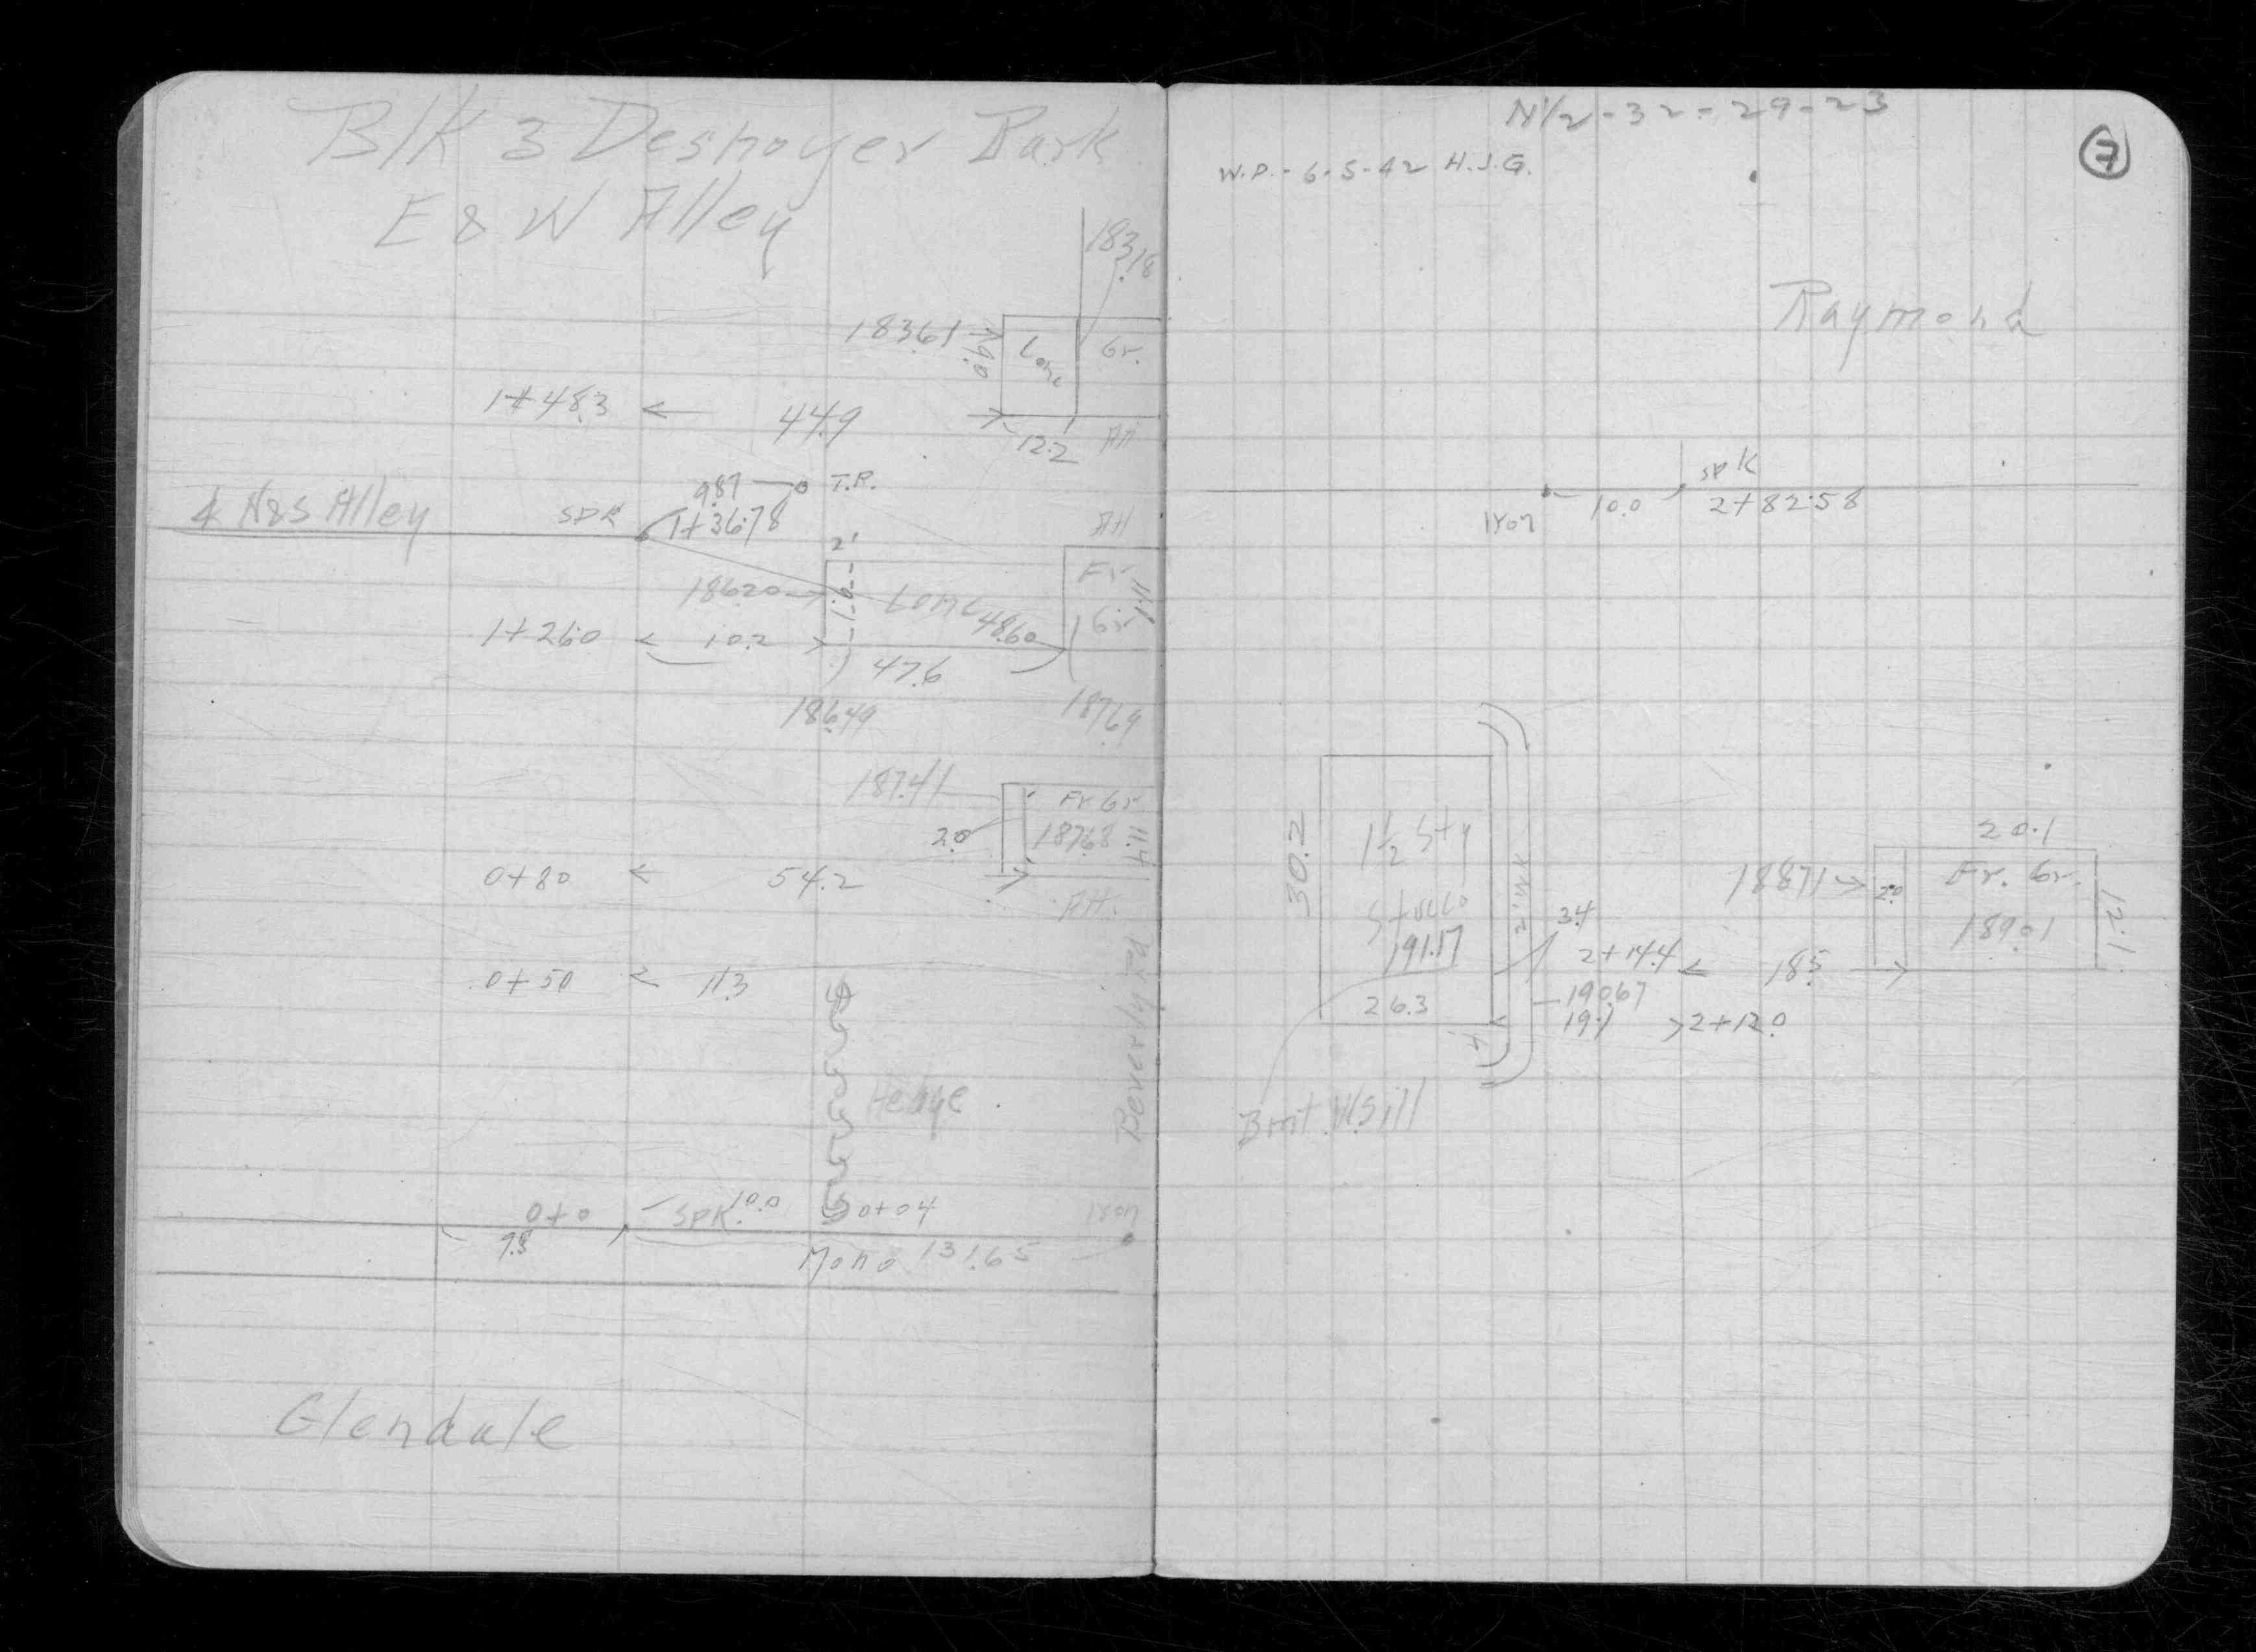 Blk 3 Desnoyer Park
E & W Alley
183.18
183.61
19.0
Conc
Gr.
1+48.3
44.9
12.2
AH
9.87
T.P.
N&S Alley
SPK
1+36.78
AH
2'
Fr
Gr
11.1
186.20
Conc
48.60
1+26.0
10.2
47.6
186.49
187.69
187.41
Fr Gr
187.68
11.4
2.0
0+80
54.2
AH.
0+50
11.3
Hedge
Beverly Rd
0+0
SPK
10.0
0+04
Iron
9.8
Mono 131.65
Glendale
N1/2-32-29-23
7
W.P.-6-5-42 H.J.G.
Raymond
SPK
Iron
10.0
2+82.58
30.2
1½ Sty
Stucco
191.17
26.3
2' WK
3.4
2+14.4
18.5
190.67
19.1
2+12.0
20.1
188.71
2.0
Fr. Gr.
189.01
12.1
Bmt. W. Sill